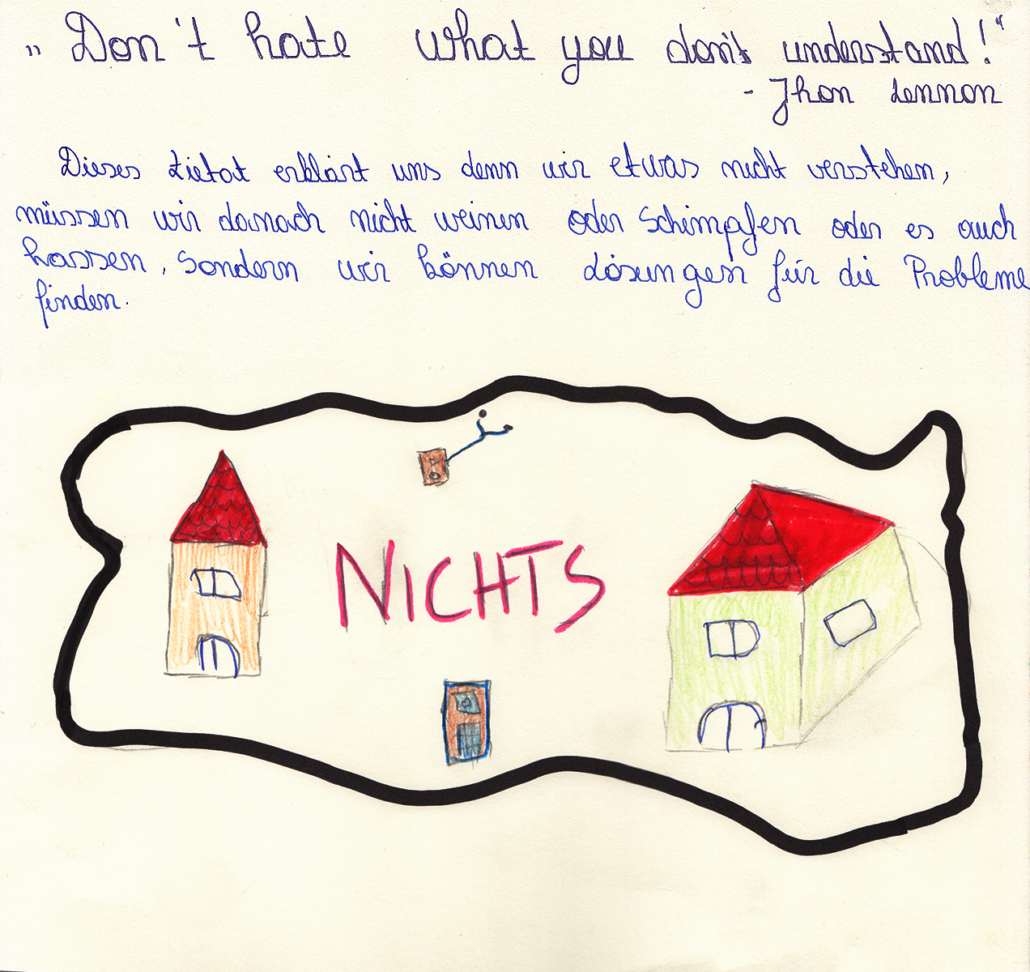 „Don't hate what you don't understand!“
- Jhon Lennon
Dieses Zietat erklärt uns denn wir etwas nicht verstehen,
müssen wir danach nicht weinen oder Schimpfen oder es auch
hassen, Sondern wir können Lösungen für die Probleme
finden.
NICHTS